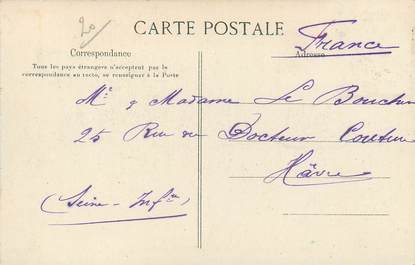 20
CARTE POSTALE
France
Correspondance
Adresse
Tous les pays étrangers n'acceptent pas la
correspondance au recto, se renseigner à la Poste
Mr & Madame Le Bouchu
25 Rue du Docteur Couture
Hâvre
(Seine-Infre)